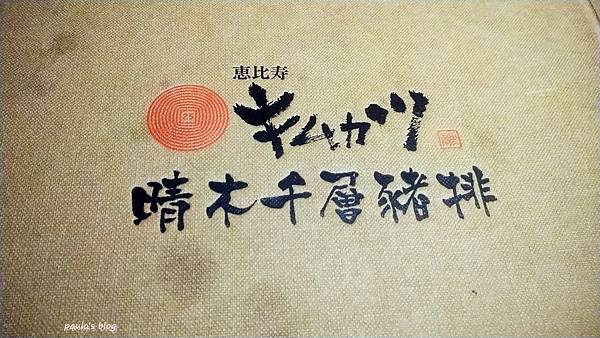 恵比寿
キムカツ
晴木千層豬排
paula's blog